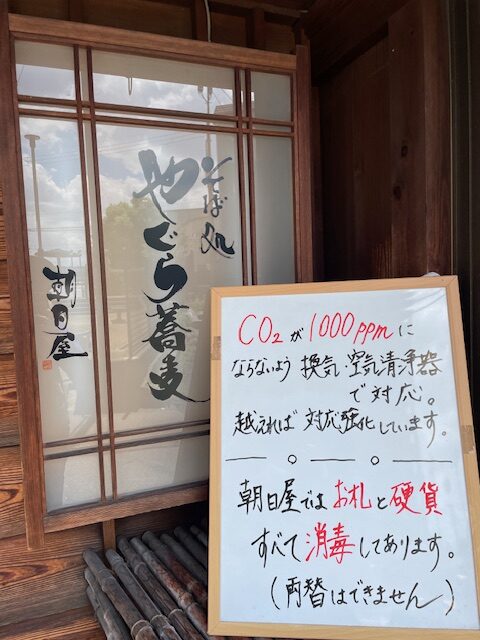 そば処
やぐら蕎麦
朝日屋
CO₂が1000ppmに
ならないよう換気・空気清浄器
で対応。
越えれば対応強化しています。
朝日屋ではお札と硬貨
すべて消毒してあります。
(両替はできません)